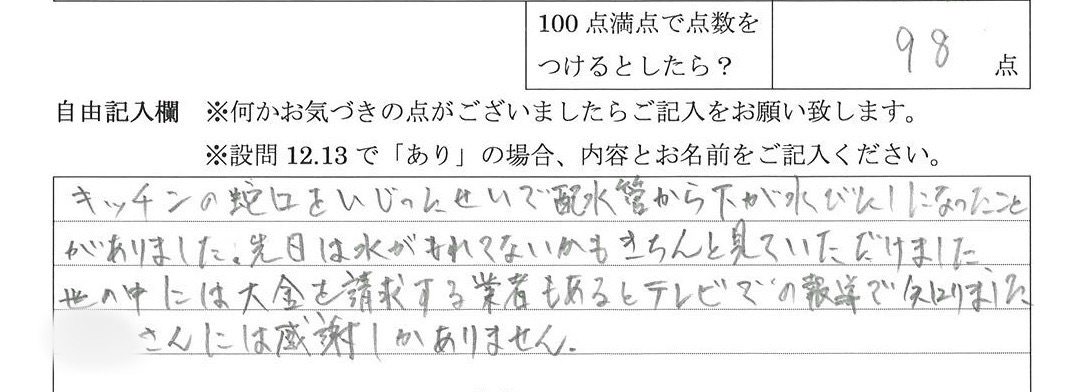 100点満点で点数を
つけるとしたら?
98 点
自由記入欄 ※何かお気づきの点がございましたらご記入をお願い致します。
※設問12.13で「あり」の場合、内容とお名前をご記入ください。
キッチンの蛇口をいじったせいで配水管から下が水びたしになったこと
がありました。先日は水がもれてないかもきちんと見ていただけました、
世の中には大金を請求する業者もあるとテレビでの報道で知りました
さんには感謝しかありません。